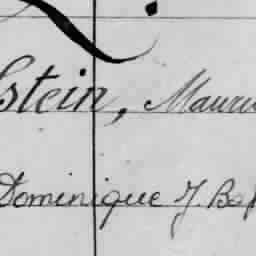 stein, Mauri
Dominique J. Ba